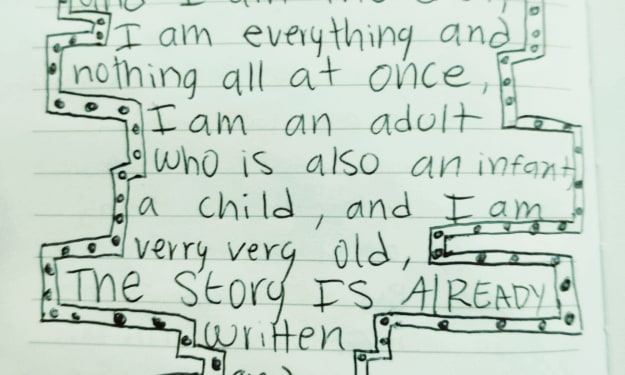 I am everything and
nothing all at once,
I am an adult
who is also an infant,
a child, and I am
verry very old,
THE Story IS AlREADY
written